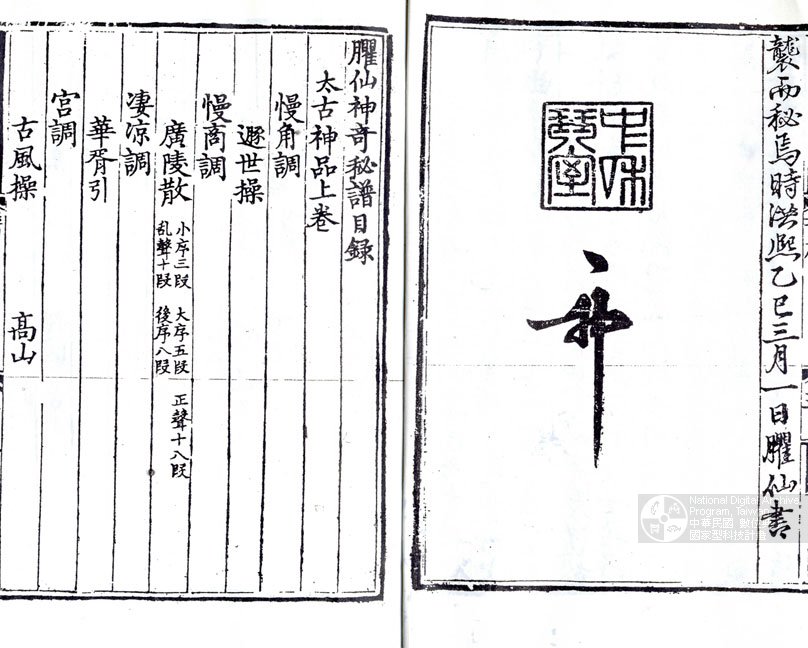 襲而秘焉時洪熙乙巳三月一日臞仙書
中和
琴室
臞仙神奇秘譜目録
太古神品上卷
慢角調
遯世操
慢商調
廣陵散 小序三叚 大序五叚 正聲十八叚
乱聲十叚 後序八叚
凄凉調
華胥引
宮調
古風操 髙山
National Digital Archive
Program, Taiwan
中華民國 數位
國家型科技計畫